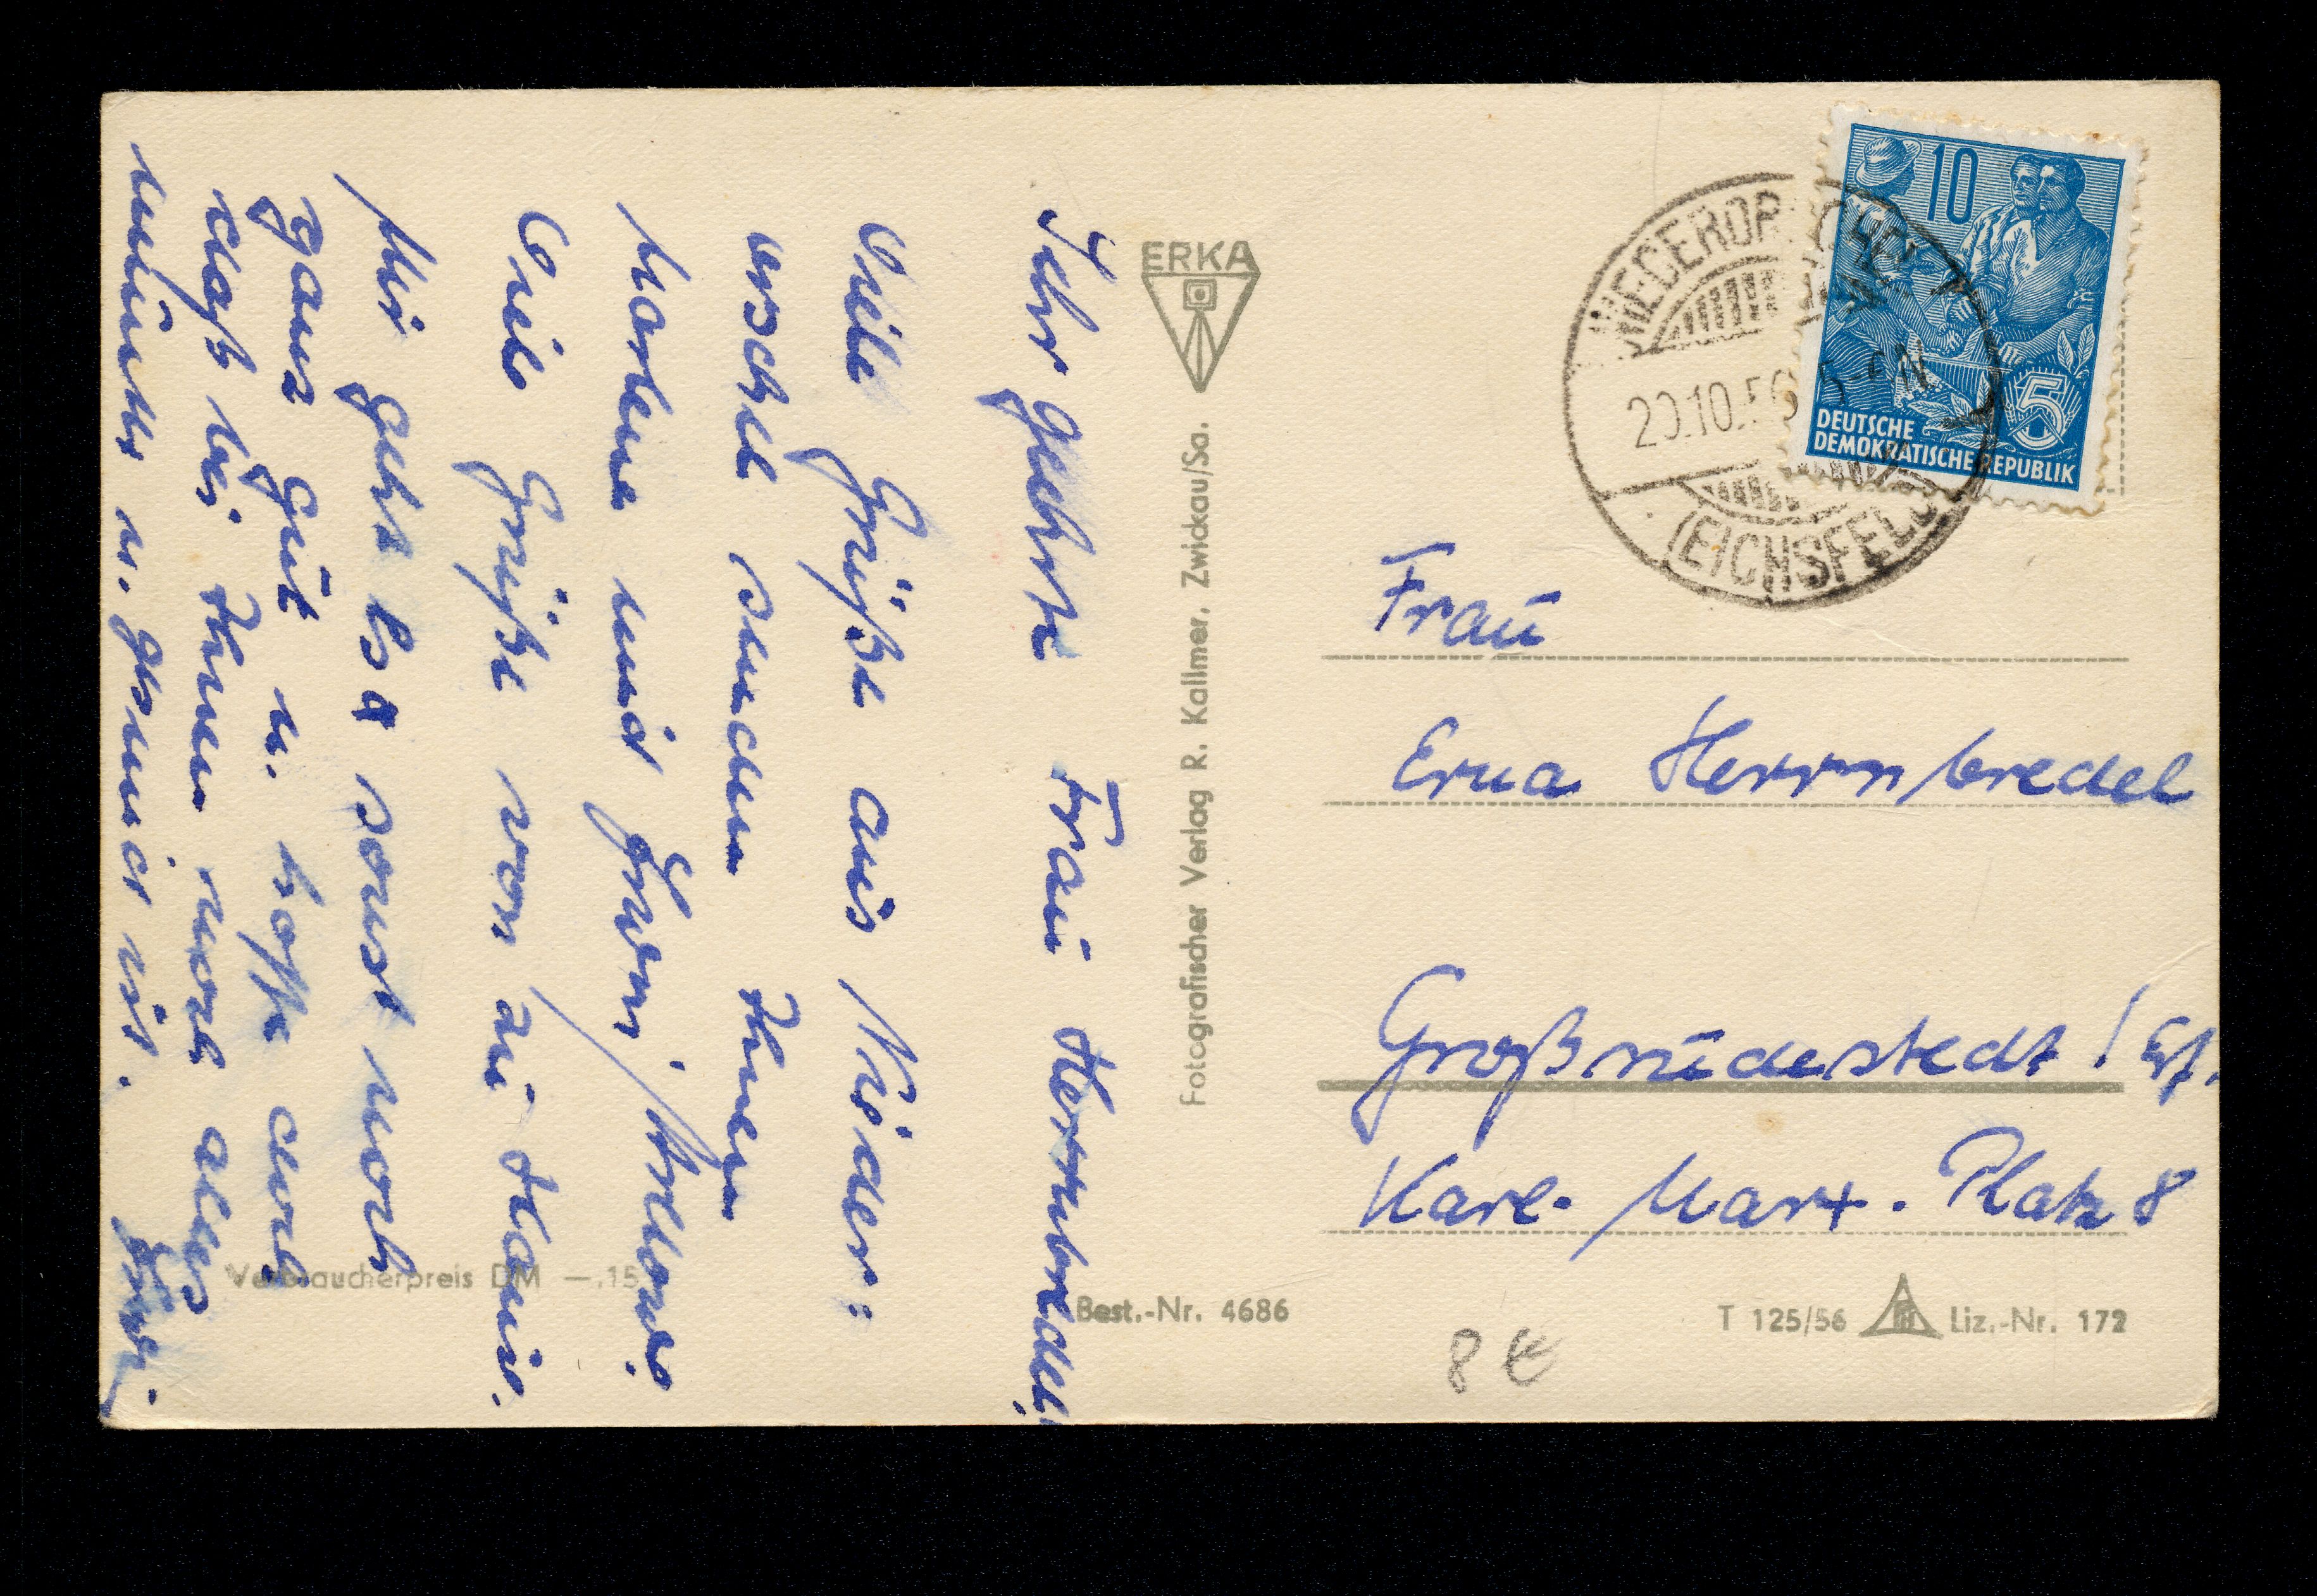 Sehr geehrte Frau Herrnbredel!
Viele Grüße aus Nieder:
orschel senden Ihnen
Marlene und Erwin
Viele Grüße von zu Haus.
Mir geht es sonst noch
ganz gut u. hoffe auch
daß bei Ihnen noch alles
munter u. gesund ist.
Erwin.
ERKA
Fotografischer Verlag R. Kallmer, Zwickau/Sa.
10
DEUTSCHE
DEMOKRATISCHE REPUBLIK
5
NIEDERORSCHEL
20.10.56
(EICHSFELD)
Frau
Erna Herrnbredel
Großrudestedt / Erf.
Karl-Marx-Platz 8
Verbraucherpreis DM —.15
Best.-Nr. 4686
T 125/56
Liz.-Nr. 172
8 €